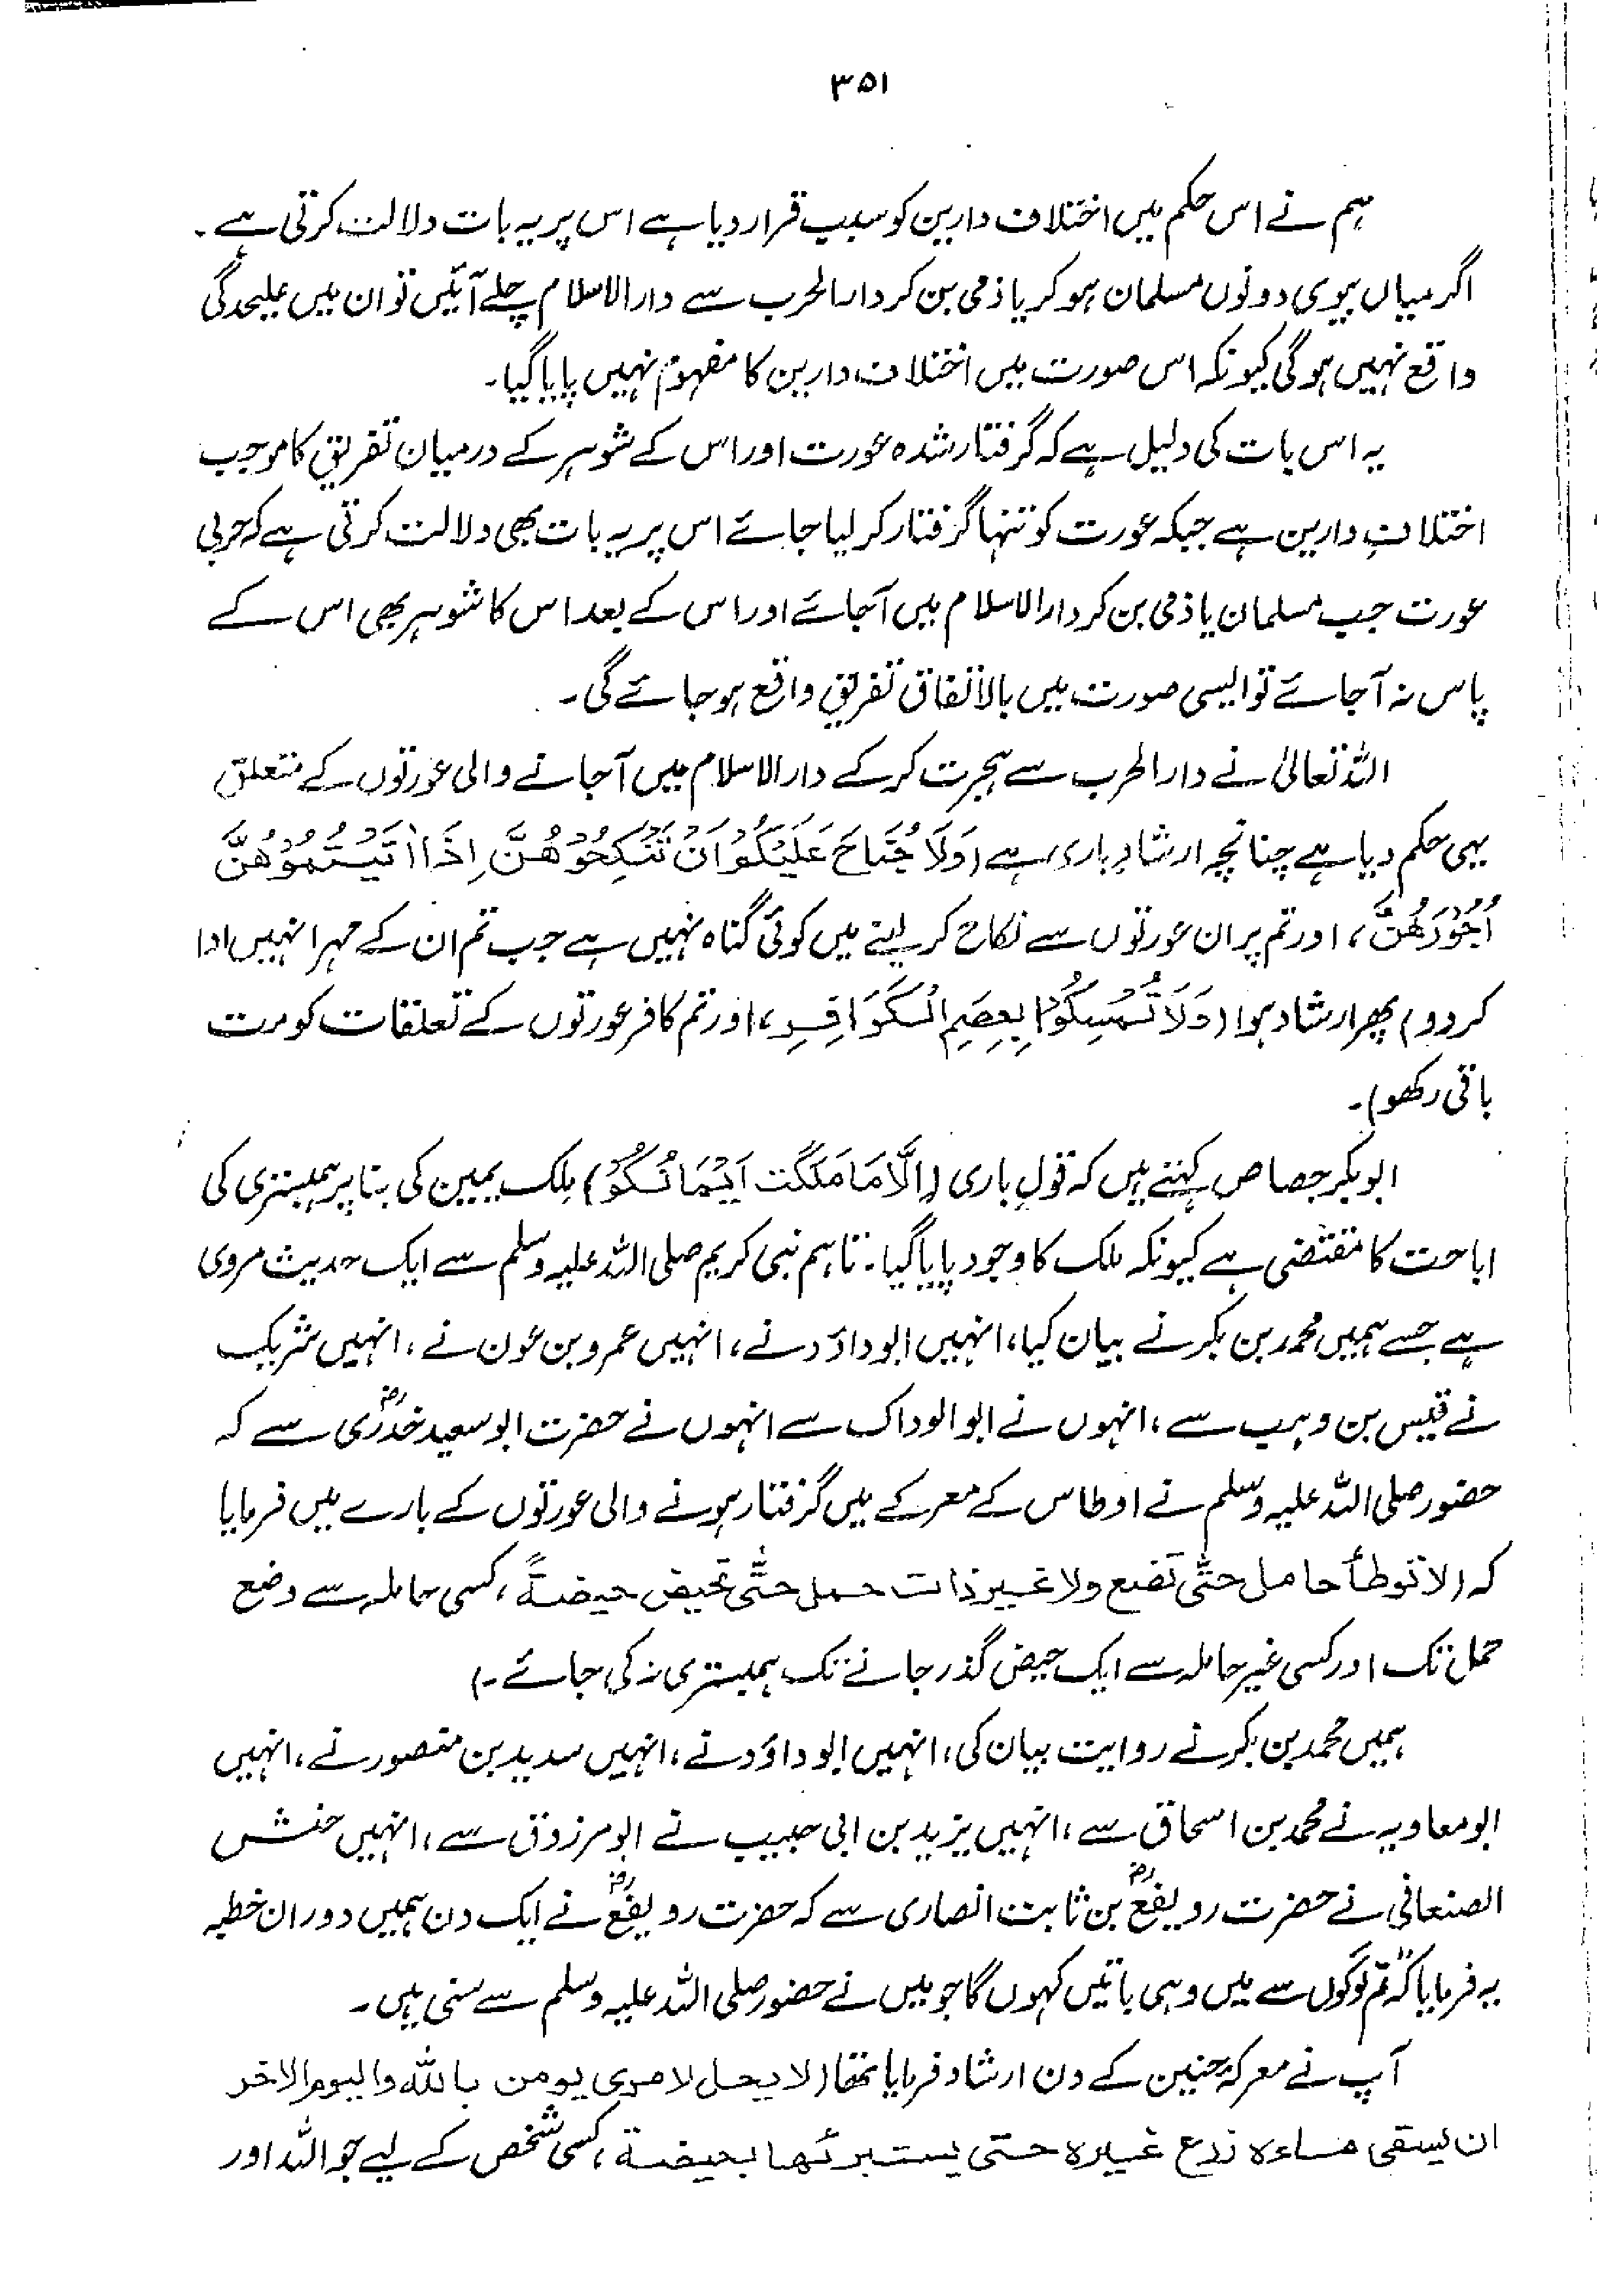 ۳۵۱
ہم نے اس حکم میں اختلاف دارین کو سبب قرار دیا ہے اس پر یہ بات دلالت کرتی ہے۔
اگر میاں بیوی دونوں مسلمان ہو کر یا ذمی بن کر دارالحرب سے دارالاسلام چلے آئیں تو ان میں علیحدگی
واقع نہیں ہوگی کیونکہ اس صورت میں اختلاف دارین کا مفہوم نہیں پایا گیا۔
یہ اس بات کی دلیل ہے کہ گرفتار شدہ عورت اور اس کے شوہر کے درمیان تفریق کا موجب
اختلافِ دارین ہے جبکہ عورت کو تنہا گرفتار کر لیا جائے اس پر یہ بات بھی دلالت کرتی ہے کہ حربی
عورت جب مسلمان یا ذمی بن کر دارالاسلام میں آجائے اور اس کے بعد اس کا شوہر بھی اس کے
پاس نہ آجائے تو ایسی صورت میں بالاتفاق تفریق واقع ہو جائے گی۔
اللہ تعالیٰ نے دارالحرب سے ہجرت کر کے دارالاسلام میں آجانے والی عورتوں کے متعلق
یہی حکم دیا ہے چنانچہ ارشادِ باری ہے (وَلَا جُنَاحَ عَلَيْكُمْ اَنْ تَنْكِحُوْهُنَّ اِذَا اٰتَيْتُمُوْهُنَّ
اُجُوْرَهُنَّ، اور تم پر ان عورتوں سے نکاح کر لینے میں کوئی گناہ نہیں ہے جب تم ان کے مہر انہیں ادا
کر دو) پھر ارشاد ہوا (وَلَا تُمْسِكُوْا بِعِصَمِ الْكَوَافِرِ، اور تم کافر عورتوں کے تعلقات کو مت
باقی رکھو)۔
ابو بکر جصاص کہتے ہیں کہ قولِ باری (اِلَّا مَا مَلَكَتْ اَيْمَانُكُمْ) مِلک یمین کی بنا پر ہمبستری کی
اباحت کا مقتضی ہے کیونکہ ملک کا وجود پایا گیا۔ تاہم نبی کریم صلی اللہ علیہ وسلم سے ایک حدیث مروی
ہے جسے ہمیں محمد بن بکر نے بیان کیا، انہیں ابو داؤد نے، انہیں عمرو بن عون نے، انہیں شریک
نے قیس بن وہب سے، انہوں نے ابوالوداک سے انہوں نے حضرت ابو سعید خدریؓ سے کہ
حضور صلی اللہ علیہ وسلم نے اوطاس کے معرکے میں گرفتار ہونے والی عورتوں کے بارے میں فرمایا
کہ (لا توطأ حامل حتّٰی تضع ولا غیر ذات حمل حتّٰی تحیض حیضةً، کسی حاملہ سے وضع
حمل تک اور کسی غیر حاملہ سے ایک حیض گذر جانے تک ہمبستری نہ کی جائے۔)
ہمیں محمد بن بکر نے روایت بیان کی، انہیں ابو داؤد نے، انہیں سدید بن منصور نے، انہیں
ابو معاویہ نے محمد بن اسحاق سے، انہیں یزید بن ابی حبیب نے ابو مرزوق سے، انہیں حنش
الصنعانی نے حضرت رویفعؓ بن ثابت انصاری سے کہ حضرت رویفعؓ نے ایک دن ہمیں دوران خطبہ
یہ فرمایا کہ "تم لوگوں سے میں وہی باتیں کہوں گا جو میں نے حضور صلی اللہ علیہ وسلم سے سنی ہیں۔
آپ نے معرکۂ حنین کے دن ارشاد فرمایا تھا (لا یحل لامری یومن باللہ والیوم الاخر
ان یسقی ماءہ زرع غیرہ حتی یستبرئھا بحیضة، کسی شخص کے لیے جو اللہ اور